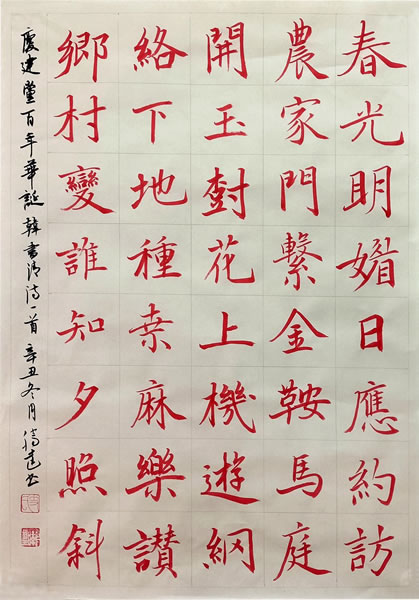 春光明媚日應約訪
農家門繫金鞍馬庭
開玉樹花上機遊網
絡下地種桒麻樂讚
鄉村變誰知夕照斜
慶建黨百年華誕 韓書清詩一首 辛丑冬月